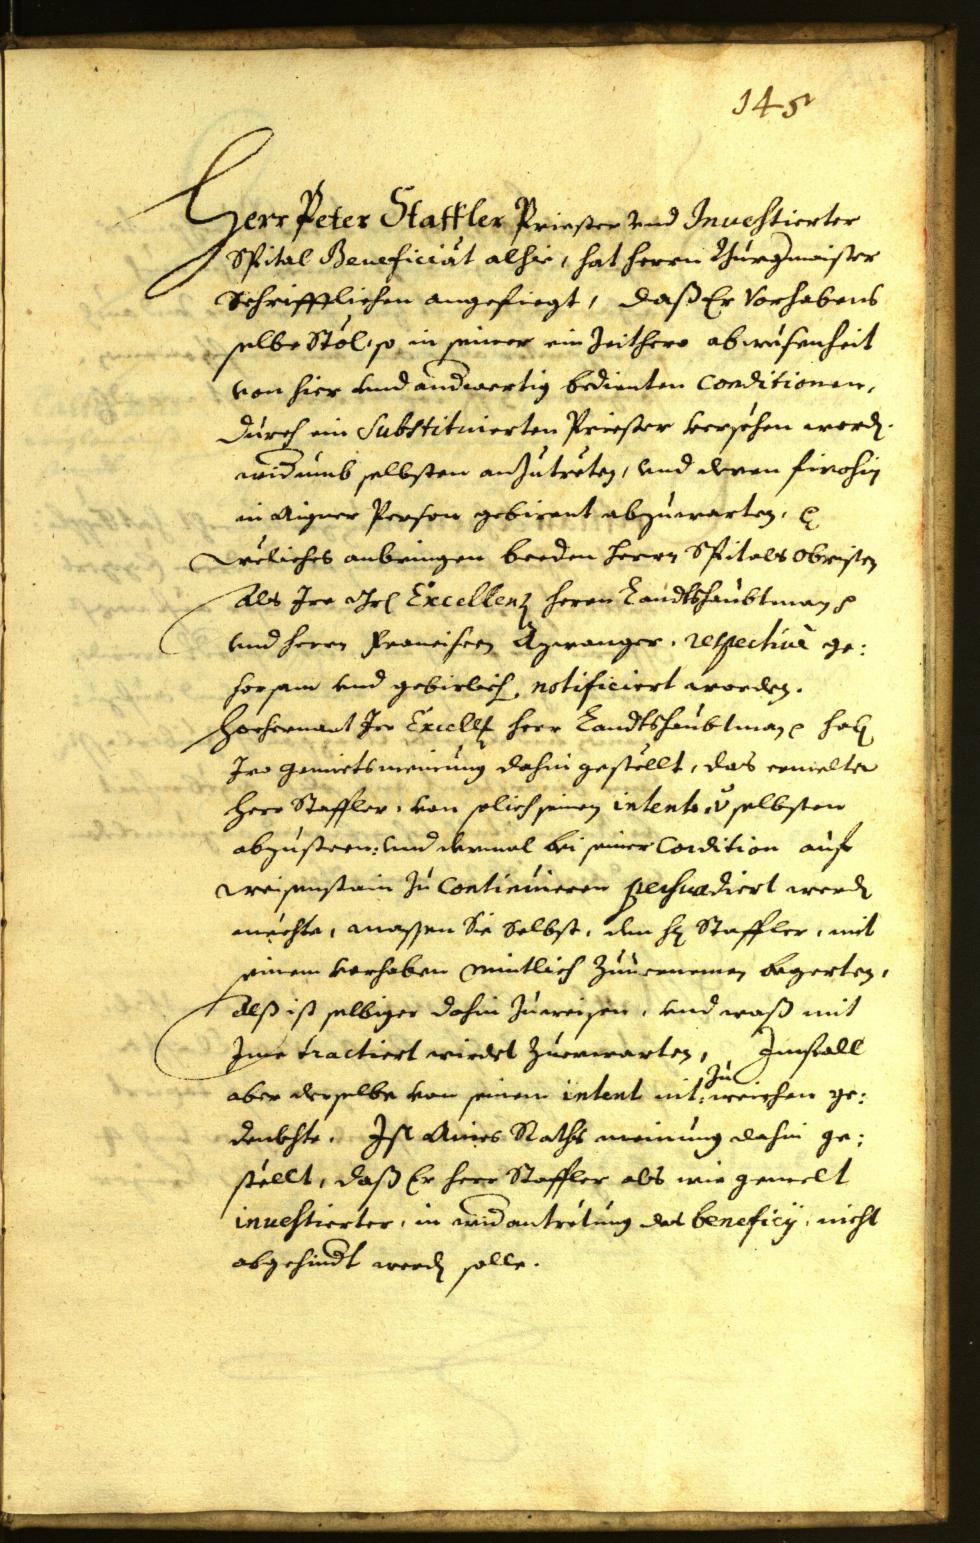 145
Herr Peter Staffler Priester vnd Inuestierter
Spital Beneficiat alhie, hat herrn Burgmaister
Schrifftlichen angefiegt, daß Er Vorhabens
selbe Stöl, so in seiner ein Zeithero abwesenheit
von hier vnd andwertig bedienten Conditionen,
durch ein Substituierten Priester versehen word.
widumb selbsten anzutreten, vnd deren firohin
in Aigner Person gebirent abzuwarten.
Weliches anbringen beeden herrn Spitals Obristen
Als Ire Excellenz herrn Landtshaubtman
vnd herrn Francisen Azwanger. respectiuè ge:
horsam vnd gebirlich, notificiert worden.
Hochernant Ire Excell herr Landtshaubtman hab
Ire gemietsmeinung dahin gestellt, das ermelter
herr Staffler, von solich seinen intent selbsten
abzusteen: vnd dermal bei seiner Condition auf
Weisenstain zu Continuieren persuadiert werd
mechte, massen Sie Selbst, den h Staffler, mit
seinem vorhaben mintlich zuuernemen begerten,
Alß ist selbiger dahin zuweisen, vnd waß mit
Ime tractiert wirdet zuerwarten, Imfall
aber derselbe von seinem intent nit zu weichen ge:
denkhte. Ist Aines Raths meinung dahin ge:
stellt, daß Er herr Staffler als wie gemelt
inuestierter, in widantretung des beneficij, nicht
abgehindt werd solle.